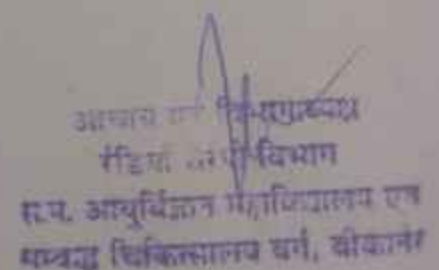 आचार्य एवं विभागाध्यक्ष
रेडियो थैरेपी विभाग
स.प. आयुर्विज्ञान महाविद्यालय एवं
सम्बद्ध चिकित्सालय वर्ग, बीकानेर